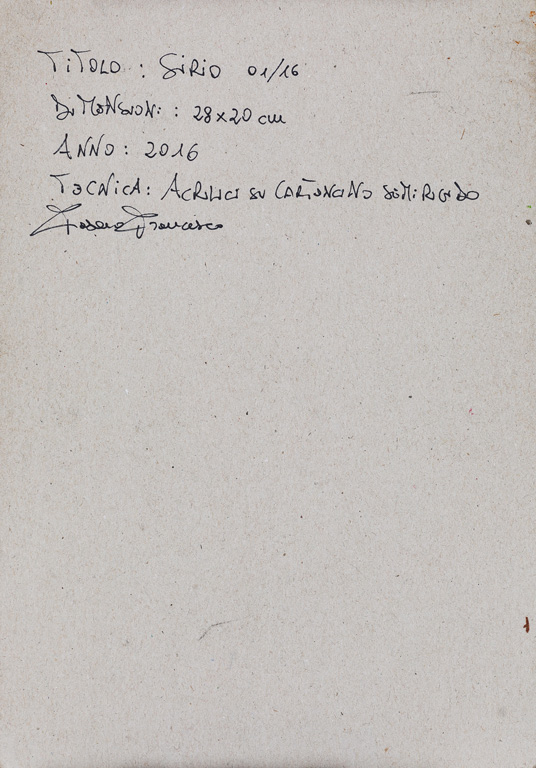 TITOLO : SIRIO 01/16
DIMENSIONI : 28x20 cm
ANNO : 2016
TECNICA : ACRILICI SU CARTONCINO SEMIRIGIDO
Francesco